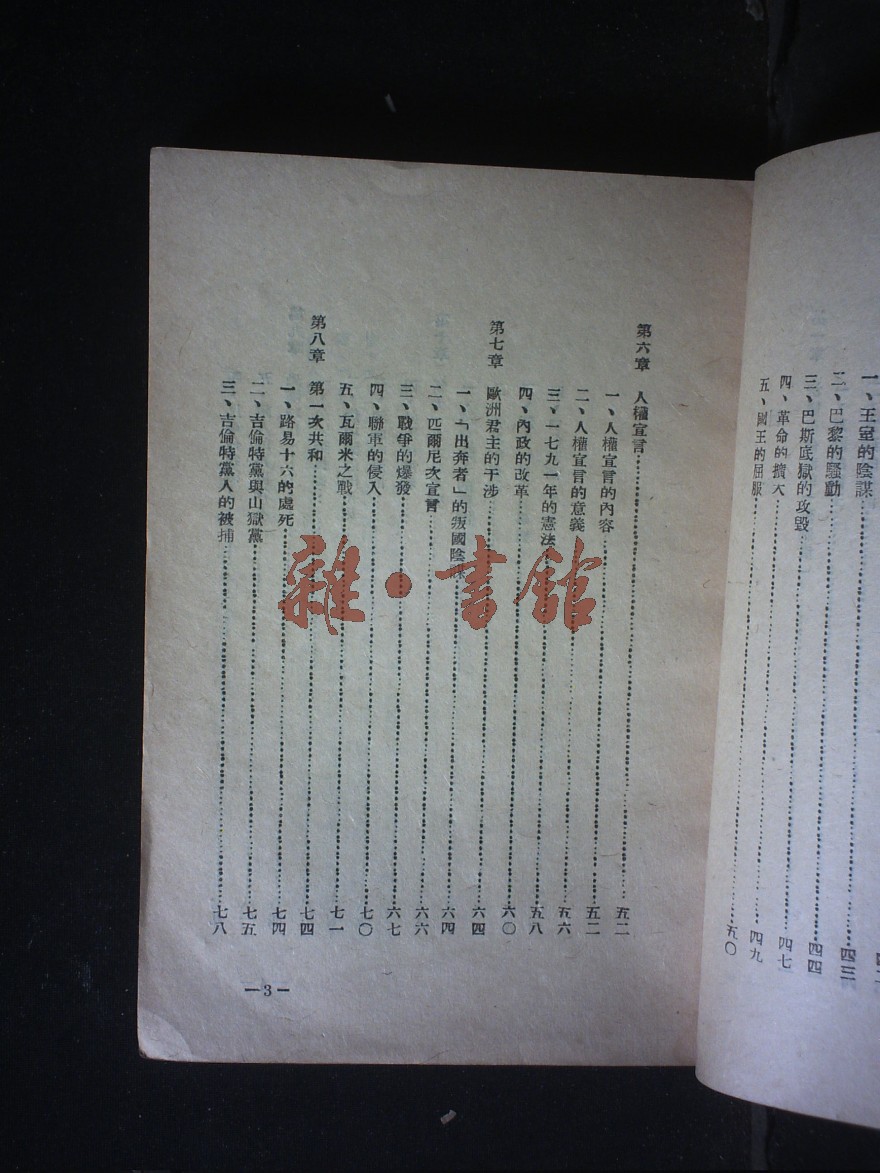 一、王室的陰謀……四三
二、巴黎的騷動……四四
三、巴斯底獄的攻毀……四七
四、革命的擴大……四九
五、國王的屈服……五〇
第六章 人權宣言……五二
一、人權宣言的內容……五二
二、人權宣言的意義……五六
三、一七九一年的憲法……五八
四、內政的改革……六〇
第七章 歐洲君主的干涉……六四
一、「出奔者」的叛國陰謀……六四
二、匹爾尼次宣言……六六
三、戰爭的爆發……六七
四、聯軍的侵入……七〇
五、瓦爾米之戰……七一
第八章 第一次共和……七四
一、路易十六的處死……七四
二、吉倫特黨與山獄黨……七五
三、吉倫特黨人的被捕……七八
—3—
雜·書館